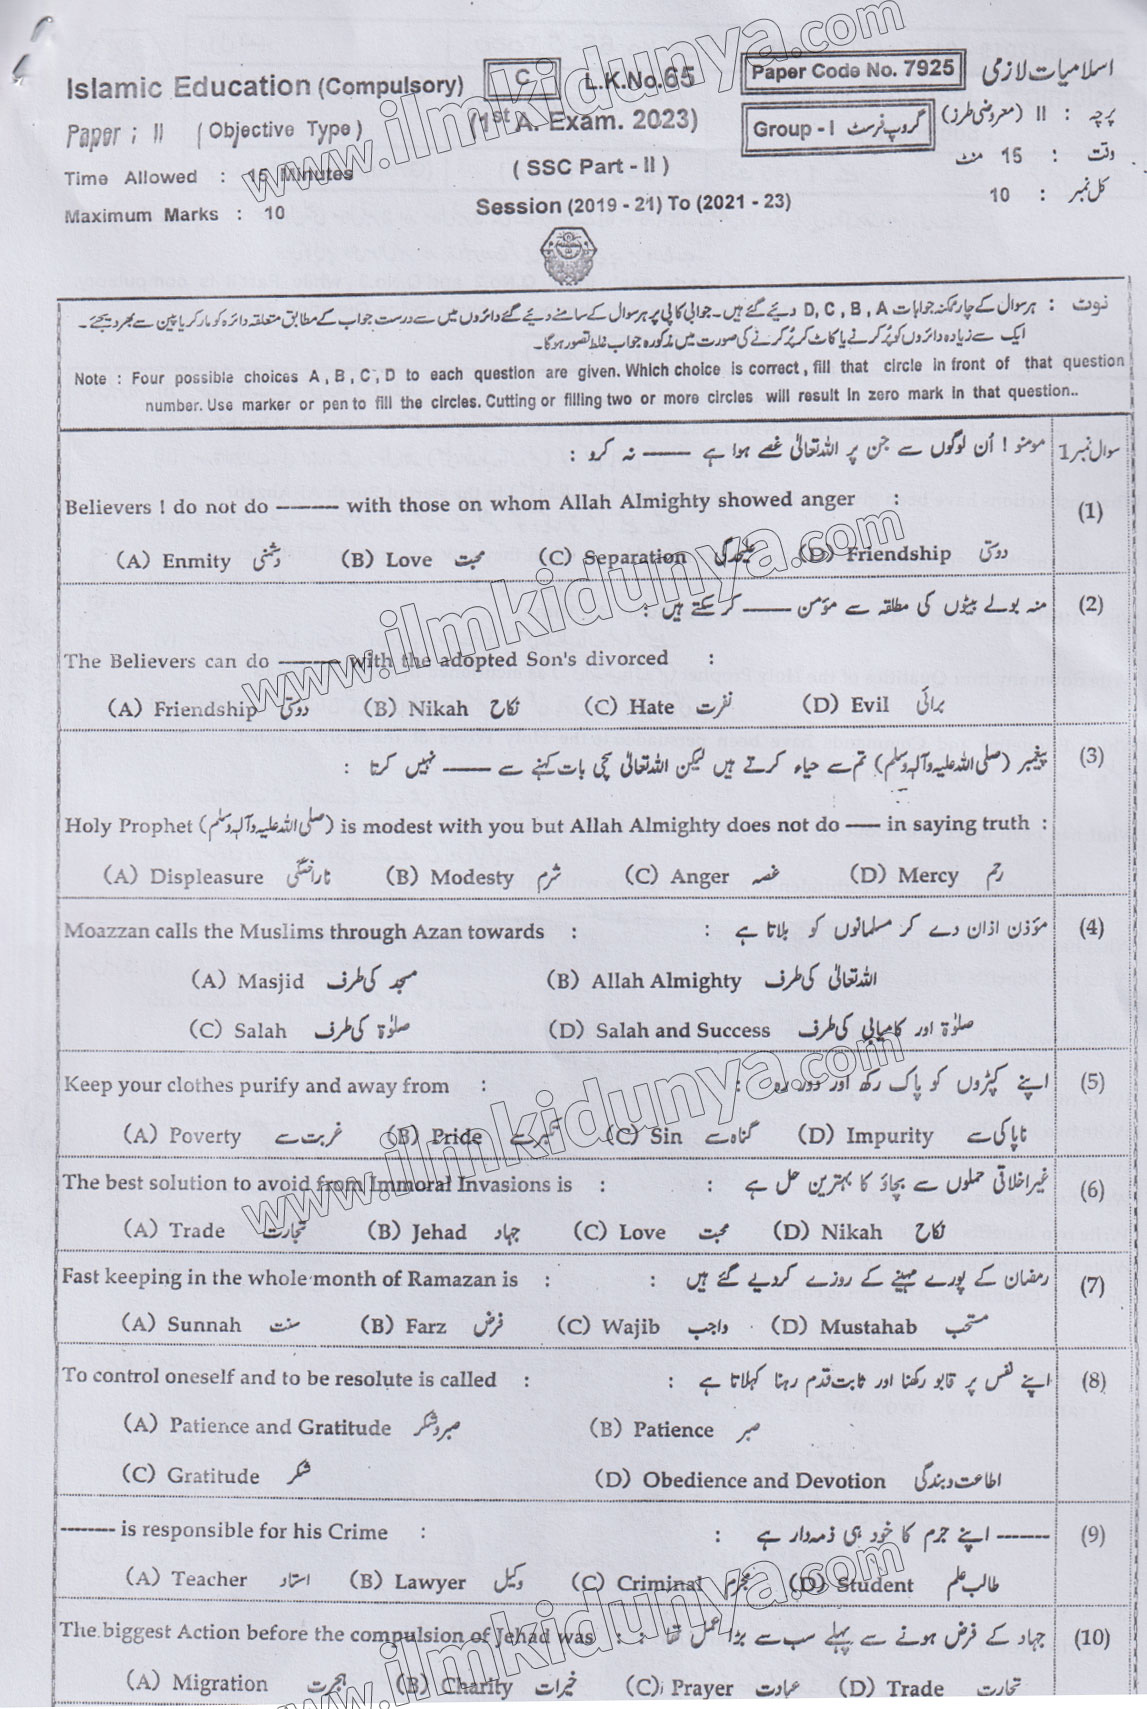 Islamic Education (Compulsory) C L.K.No.65 Paper Code No. 7925 اسلامیات لازمی
Paper ; II ( Objective Type ) (1st A. Exam. 2023) Group - I گروپ فرسٹ پرچہ : II (معروضی طرز)
Time Allowed : 15 Minutes ( SSC Part - II ) وقت : 15 منٹ
Maximum Marks : 10 Session (2019 - 21) To (2021 - 23) کل نمبر : 10
نوٹ : ہر سوال کے چار ممکنہ جوابات D, C, B, A دیئے گئے ہیں۔ جوابی کاپی پر ہر سوال کے سامنے دیئے گئے دائروں میں سے درست جواب کے مطابق متعلقہ دائرہ کو مارکر یا پین سے بھر دیجئے۔
ایک سے زیادہ دائروں کو پُر کرنے یا کاٹ کر پُر کرنے کی صورت میں مذکورہ جواب غلط تصور ہوگا۔
Note : Four possible choices A , B , C , D to each question are given. Which choice is correct , fill that circle in front of that question
number. Use marker or pen to fill the circles. Cutting or filling two or more circles will result in zero mark in that question..
سوال نمبر 1 مومنو ! اُن لوگوں سے جن پر اللہ تعالیٰ غصے ہوا ہے ------ نہ کرو :
Believers ! do not do ------- with those on whom Allah Almighty showed anger : (1)
(A) Enmity دشمنی (B) Love محبت (C) Separation علیحدگی (D) Friendship دوستی
منہ بولے بیٹوں کی مطلقہ سے مؤمن ------ کر سکتے ہیں : (2)
The Believers can do ------- with the adopted Son's divorced :
(A) Friendship دوستی (B) Nikah نکاح (C) Hate نفرت (D) Evil برائی
پیغمبر (صلی اللہ علیہ وآلہ وسلم) تم سے حیاء کرتے ہیں لیکن اللہ تعالیٰ سچی بات کہنے سے ------ نہیں کرتا : (3)
Holy Prophet (صلی اللہ علیہ وآلہ وسلم) is modest with you but Allah Almighty does not do ---- in saying truth :
(A) Displeasure ناراضگی (B) Modesty شرم (C) Anger غصہ (D) Mercy رحم
Moazzan calls the Muslims through Azan towards : مؤذن اذان دے کر مسلمانوں کو بلاتا ہے : (4)
(A) Masjid مسجد کی طرف (B) Allah Almighty اللہ تعالیٰ کی طرف
(C) Salah صلوٰۃ کی طرف (D) Salah and Success صلوٰۃ اور کامیابی کی طرف
Keep your clothes purify and away from : اپنے کپڑوں کو پاک رکھ اور دور رہ : (5)
(A) Poverty غربت سے (B) Pride تکبر سے (C) Sin گناہ سے (D) Impurity ناپاکی سے
The best solution to avoid from Immoral Invasions is : غیر اخلاقی حملوں سے بچاؤ کا بہترین حل ہے : (6)
(A) Trade تجارت (B) Jehad جہاد (C) Love محبت (D) Nikah نکاح
Fast keeping in the whole month of Ramazan is : رمضان کے پورے مہینے کے روزے کر دیے گئے ہیں : (7)
(A) Sunnah سنت (B) Farz فرض (C) Wajib واجب (D) Mustahab مستحب
To control oneself and to be resolute is called : اپنے نفس پر قابو رکھنا اور ثابت قدم رہنا کہلاتا ہے : (8)
(A) Patience and Gratitude صبر و شکر (B) Patience صبر
(C) Gratitude شکر (D) Obedience and Devotion اطاعت و بندگی
------- is responsible for his Crime : ------ اپنے جرم کا خود ہی ذمہ دار ہے : (9)
(A) Teacher استاد (B) Lawyer وکیل (C) Criminal مجرم (D) Student طالب علم
The biggest Action before the compulsion of Jehad was : جہاد کے فرض ہونے سے پہلے سب سے بڑا عمل تھا : (10)
(A) Migration ہجرت (B) Charity خیرات (C) Prayer عبادت (D) Trade تجارت
www.ilmkidunya.com
www.ilmkidunya.com
www.ilmkidunya.com
www.ilmkidunya.com